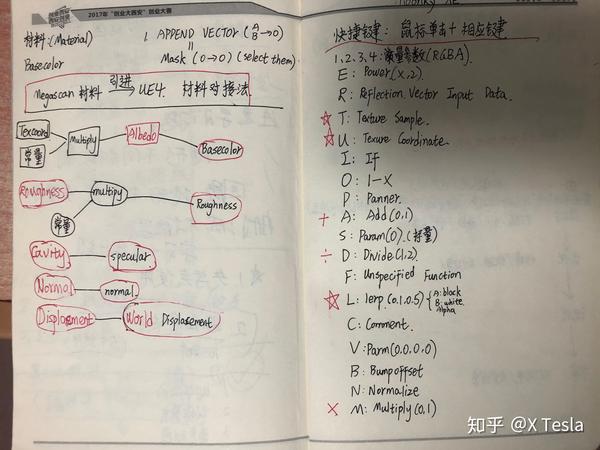 2017年“创业大西安”创业大赛
材料:(Material)
Basecolor
1. APPEND VECTOR (A B→0)
=
Mask (0→0) (select them)
Megascan 材料 引进→ UE4. 材料对接法.
Texcoord
常量
Multiply
Albedo
Basecolor
Roughness
常量
multipy
Roughness
Cavity
specular
Normal
normal
Displasement
World Displasement
快捷键: 鼠标单击+相应键
1,2,3,4:常量参数(RGBA)
E: Power(X,2).
R: Reflection Vector Input Data.
☆ T: Texture Sample.
☆ U: Texure Coordinate.
I: If
O: 1-X
P: Panner.
+ A: Add(0,1)
S: Param(0).(标量)
÷ D: Divide(1,2).
F: Unspecified Function
☆ L: lerp(0,1,0.5) { A:black
B:white
Alpha
C: Comment.
V: Parm(0,0,0,0)
B: Bumpoffset
N: Normalize
× M: Multiply(0,1)
知乎 @X Tesla